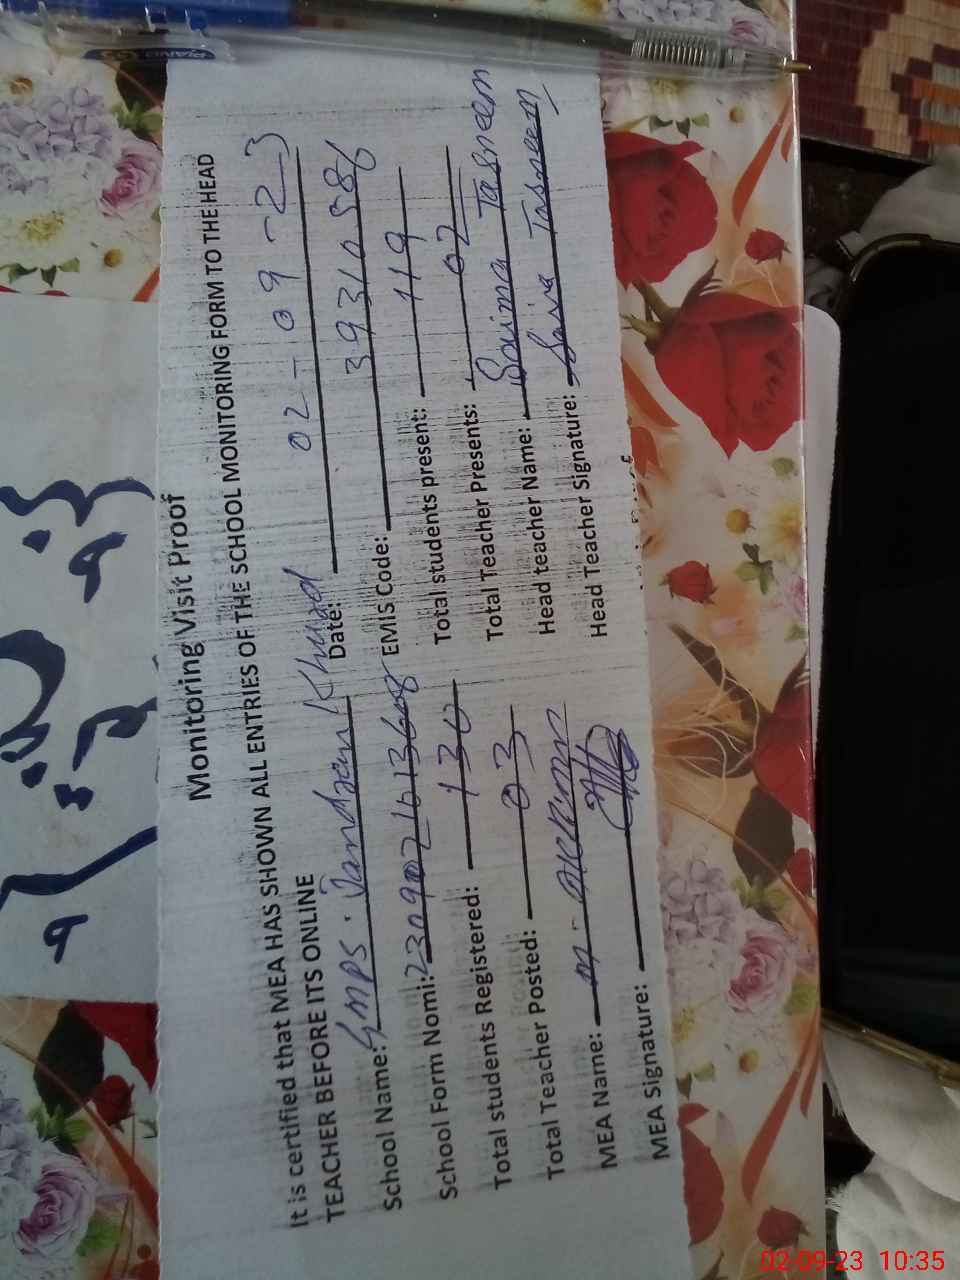 Monitoring Visit Proof
It is certified that MEA HAS SHOWN ALL ENTRIES OF THE SCHOOL MONITORING FORM TO THE HEAD
TEACHER BEFORE ITS ONLINE
School Name: GMPS. Jandaen Khurd Date: 02-09-23
School Form Nomi: EMIS Code: 39310586
Total students Registered: 130 Total students present: 119
Total Teacher Posted: 03 Total Teacher Presents: 02
MEA Name: M. Akram Head teacher Name: Saima Tasneem
MEA Signature: Head Teacher Signature: Tasneem
PIANO
02-09-23 10:35